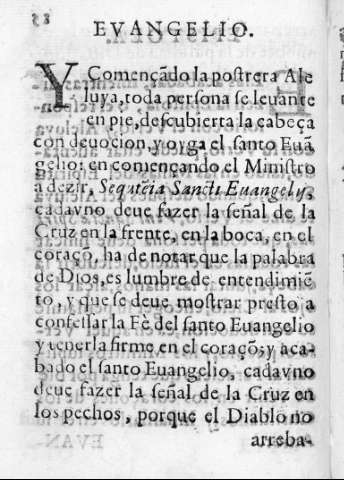 EVANGELIO.
Y Començãdo la postrera Ale
luya, toda persona se leuante
en pie, descubierta la cabeça
con deuocion, y oyga el santo Euã
gelio: en començando el Ministro
a dezir, Sequẽtia Sancti Euangelij,
cadavno deue fazer la señal de la
Cruz en la frente, en la boca, en el
coraçõ, ha de notar que la palabra
de Dios, es lumbre de entendimiẽ
to, y que se deue mostrar presto a
confessar la Fè del santo Euangelio
y tenerla firme en el coraçõ; y aca-
bado el santo Euangelio, cadavno
deue fazer la señal de la Cruz en
los pechos, porque el Diablo no
arreba-